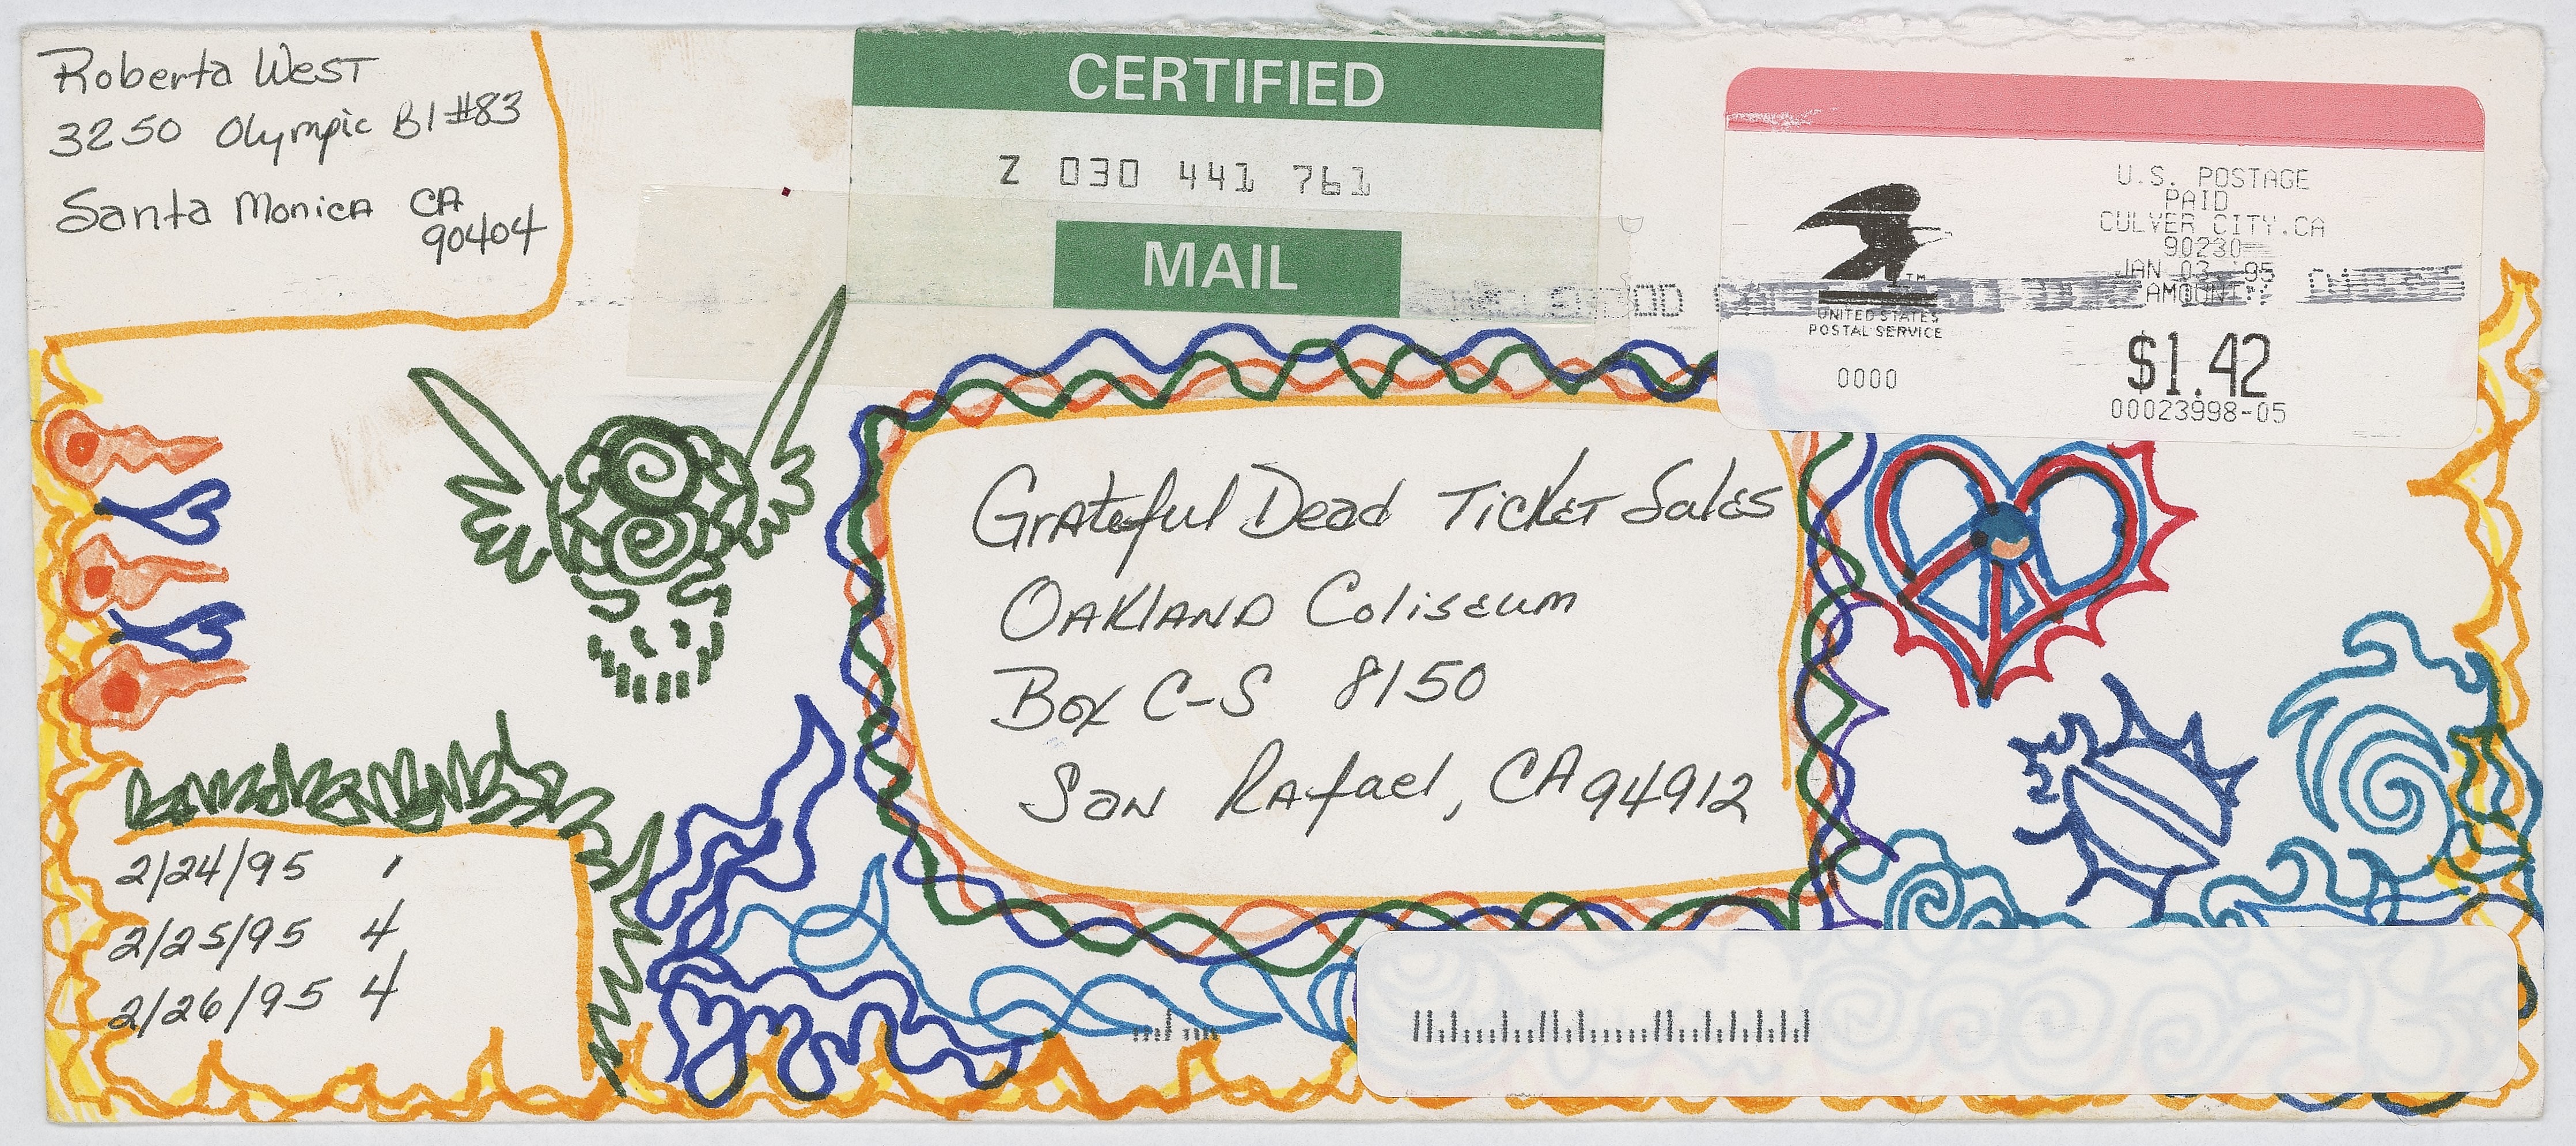 Roberta West
3250 Olympic Bl #83
Santa Monica CA
90404
CERTIFIED
Z 030 441 761
MAIL
U.S. POSTAGE
PAID
CULVER CITY.CA
90230
JAN 03 '95
AMOUNT
$1.42
00023998-05
TM
UNITED STATES
POSTAL SERVICE
0000
Grateful Dead Ticket Sales
Oakland Coliseum
Box C-S 8150
San Rafael, CA 94912
2/24/95 1
2/25/95 4
2/26/95 4